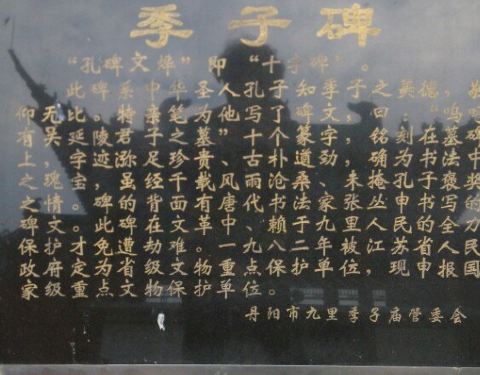 季子碑
“孔碑文烨”即“十字碑”。
此碑系中华圣人孔子知季子之贤儒，敬
仰无比。特亲笔为他写了碑文，曰：“呜呼
有吴延陵君子之墓”十个篆字，铭刻在墓碑
上。字迹弥足珍贵、古朴遒劲，确为书法中
之瑰宝。碑虽经千载风雨沧桑，未掩孔子褒奖
之情。碑的背面有唐代书法家张丛申书写的
碑文。此碑在文革中、赖于九里人民的全力
保护。才免遭劫难。一九八二年被江苏省人民
政府定为省级文物重点保护单位，现申报国
家级重点文物保护单位。
丹阳市九里季子庙管委会